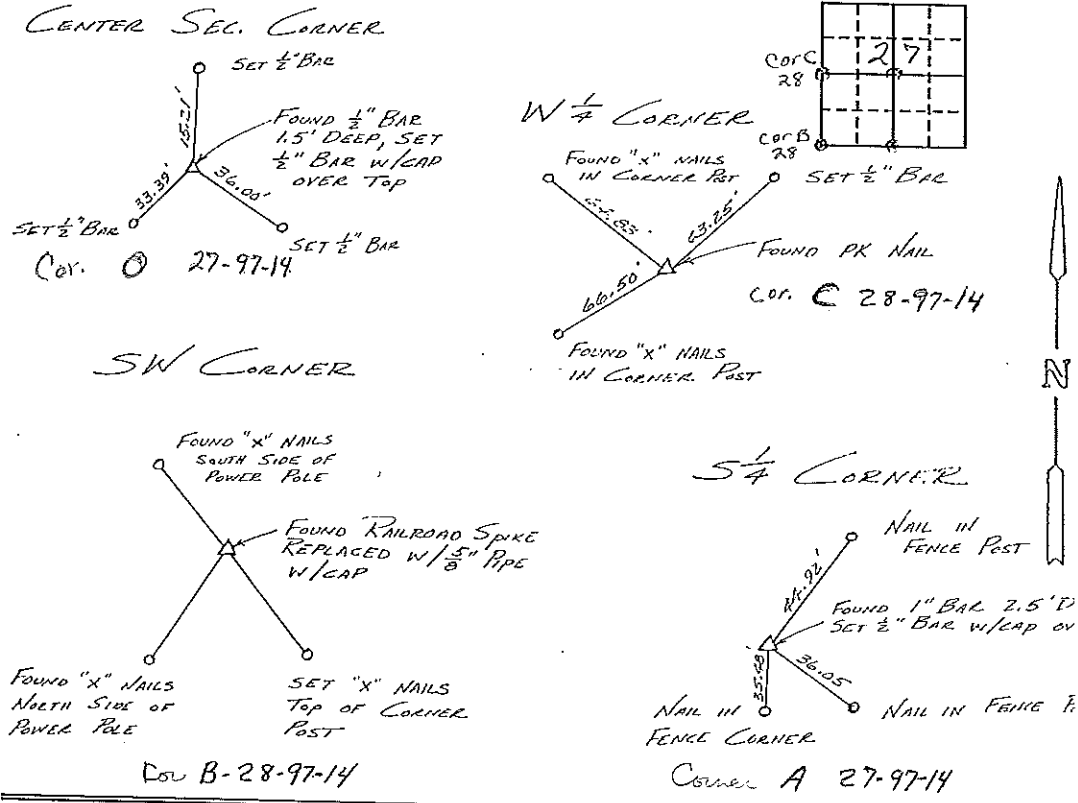 CENTER SEC. CORNER
SET ½" BAR
15.21'
FOUND ½" BAR
1.5' DEEP, SET
½" BAR W/CAP
OVER TOP
33.39'
36.00'
SET ½" BAR
SET ½" BAR
Cor. O 27-97-14
27
Cor C
28
Cor B
28
W ¼ CORNER
FOUND "X" NAILS
IN CORNER POST
SET ½" BAR
63.25'
FOUND PK NAIL
66.50'
Cor. C 28-97-14
FOUND "X" NAILS
IN CORNER POST
N
SW CORNER
FOUND "X" NAILS
SOUTH SIDE OF
POWER POLE
FOUND RAILROAD SPIKE
REPLACED W/⅝" PIPE
W/CAP
FOUND "X" NAILS
NORTH SIDE OF
POWER POLE
SET "X" NAILS
TOP OF CORNER
POST
Cor B-28-97-14
S ¼ CORNER
NAIL IN
FENCE POST
FOUND 1" BAR 2.5' D
SET ½" BAR W/CAP OV
36.05
NAIL IN
FENCE CORNER
NAIL IN FENCE P
Corner A 27-97-14